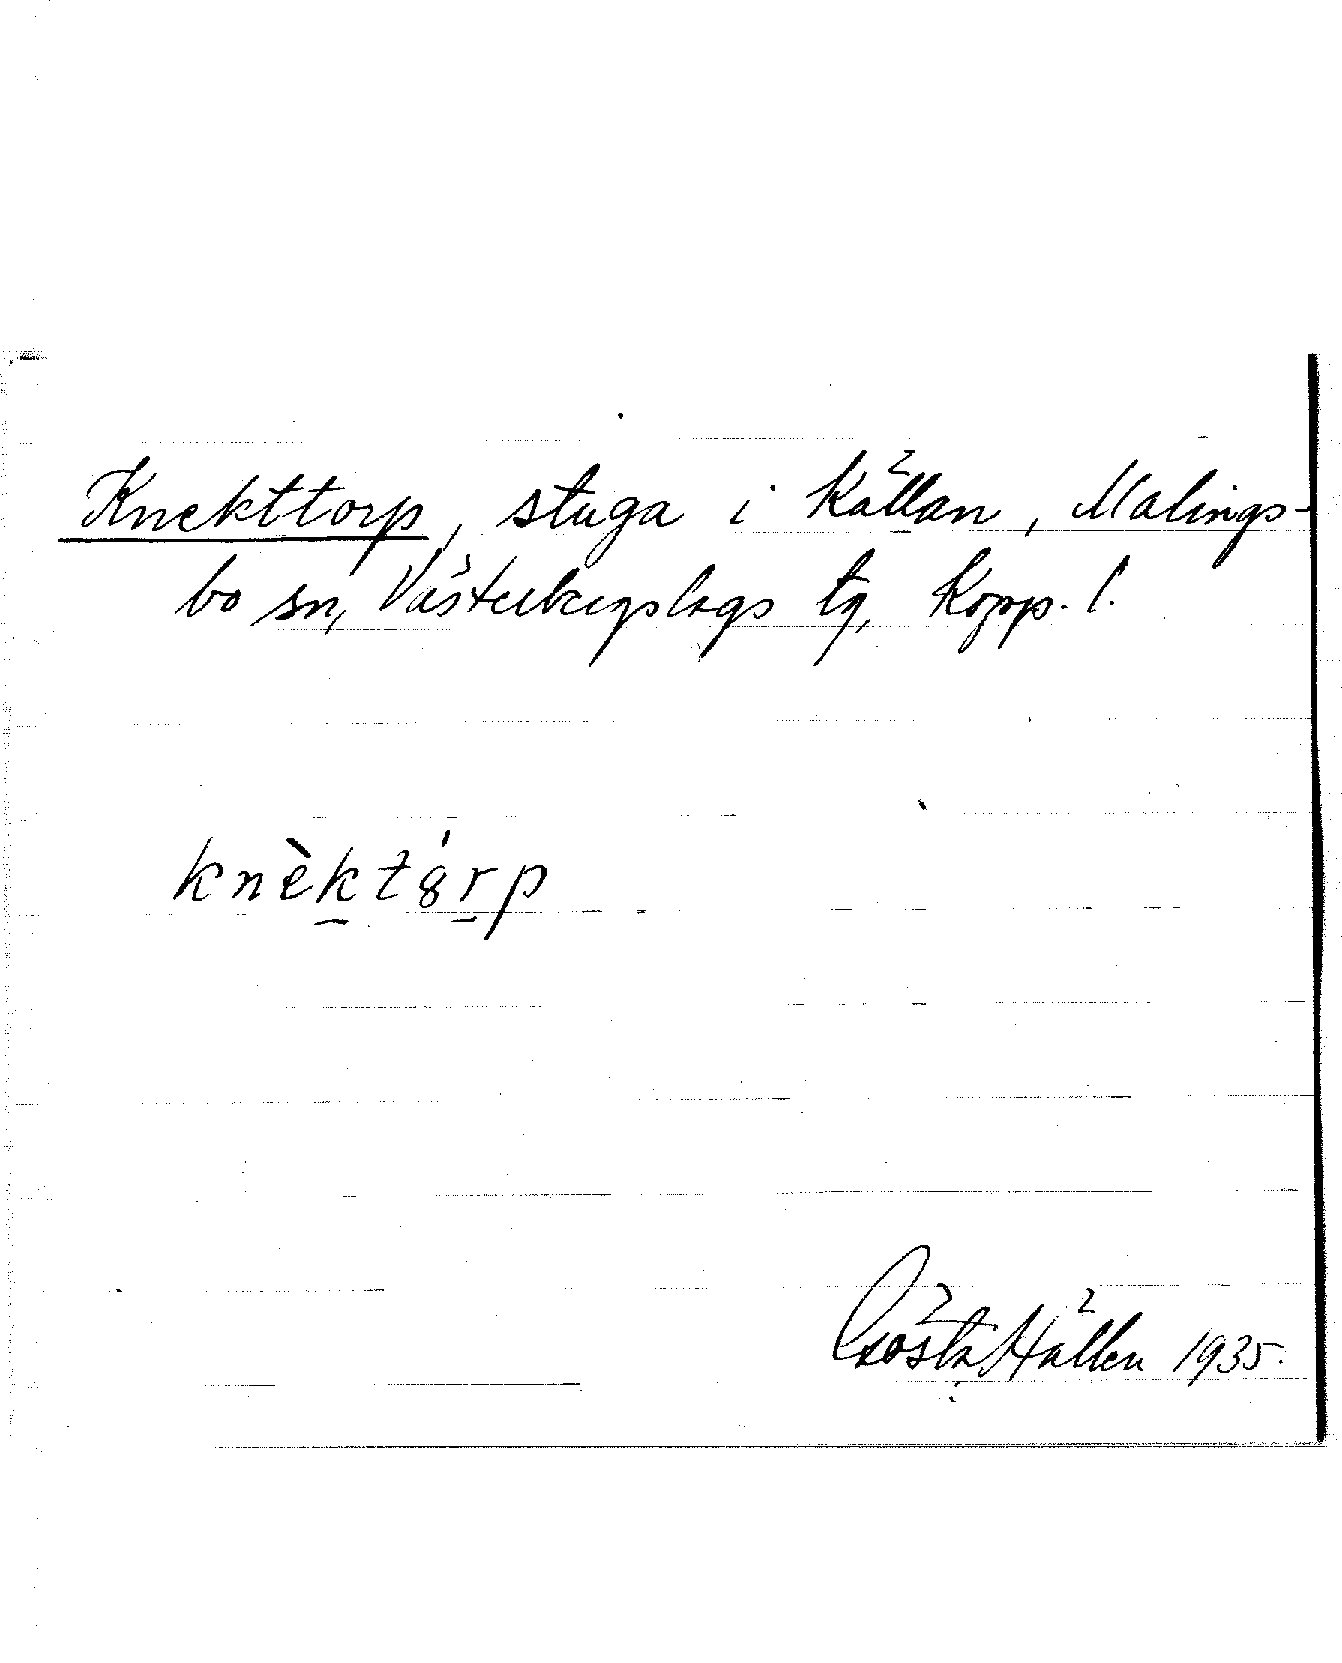 Knekttorp, stuga i Källan, Malings-
bo sn, Västerbergslags tg, Kopp. l.
knèktȣ́rp
Gösta Hällen 1935.